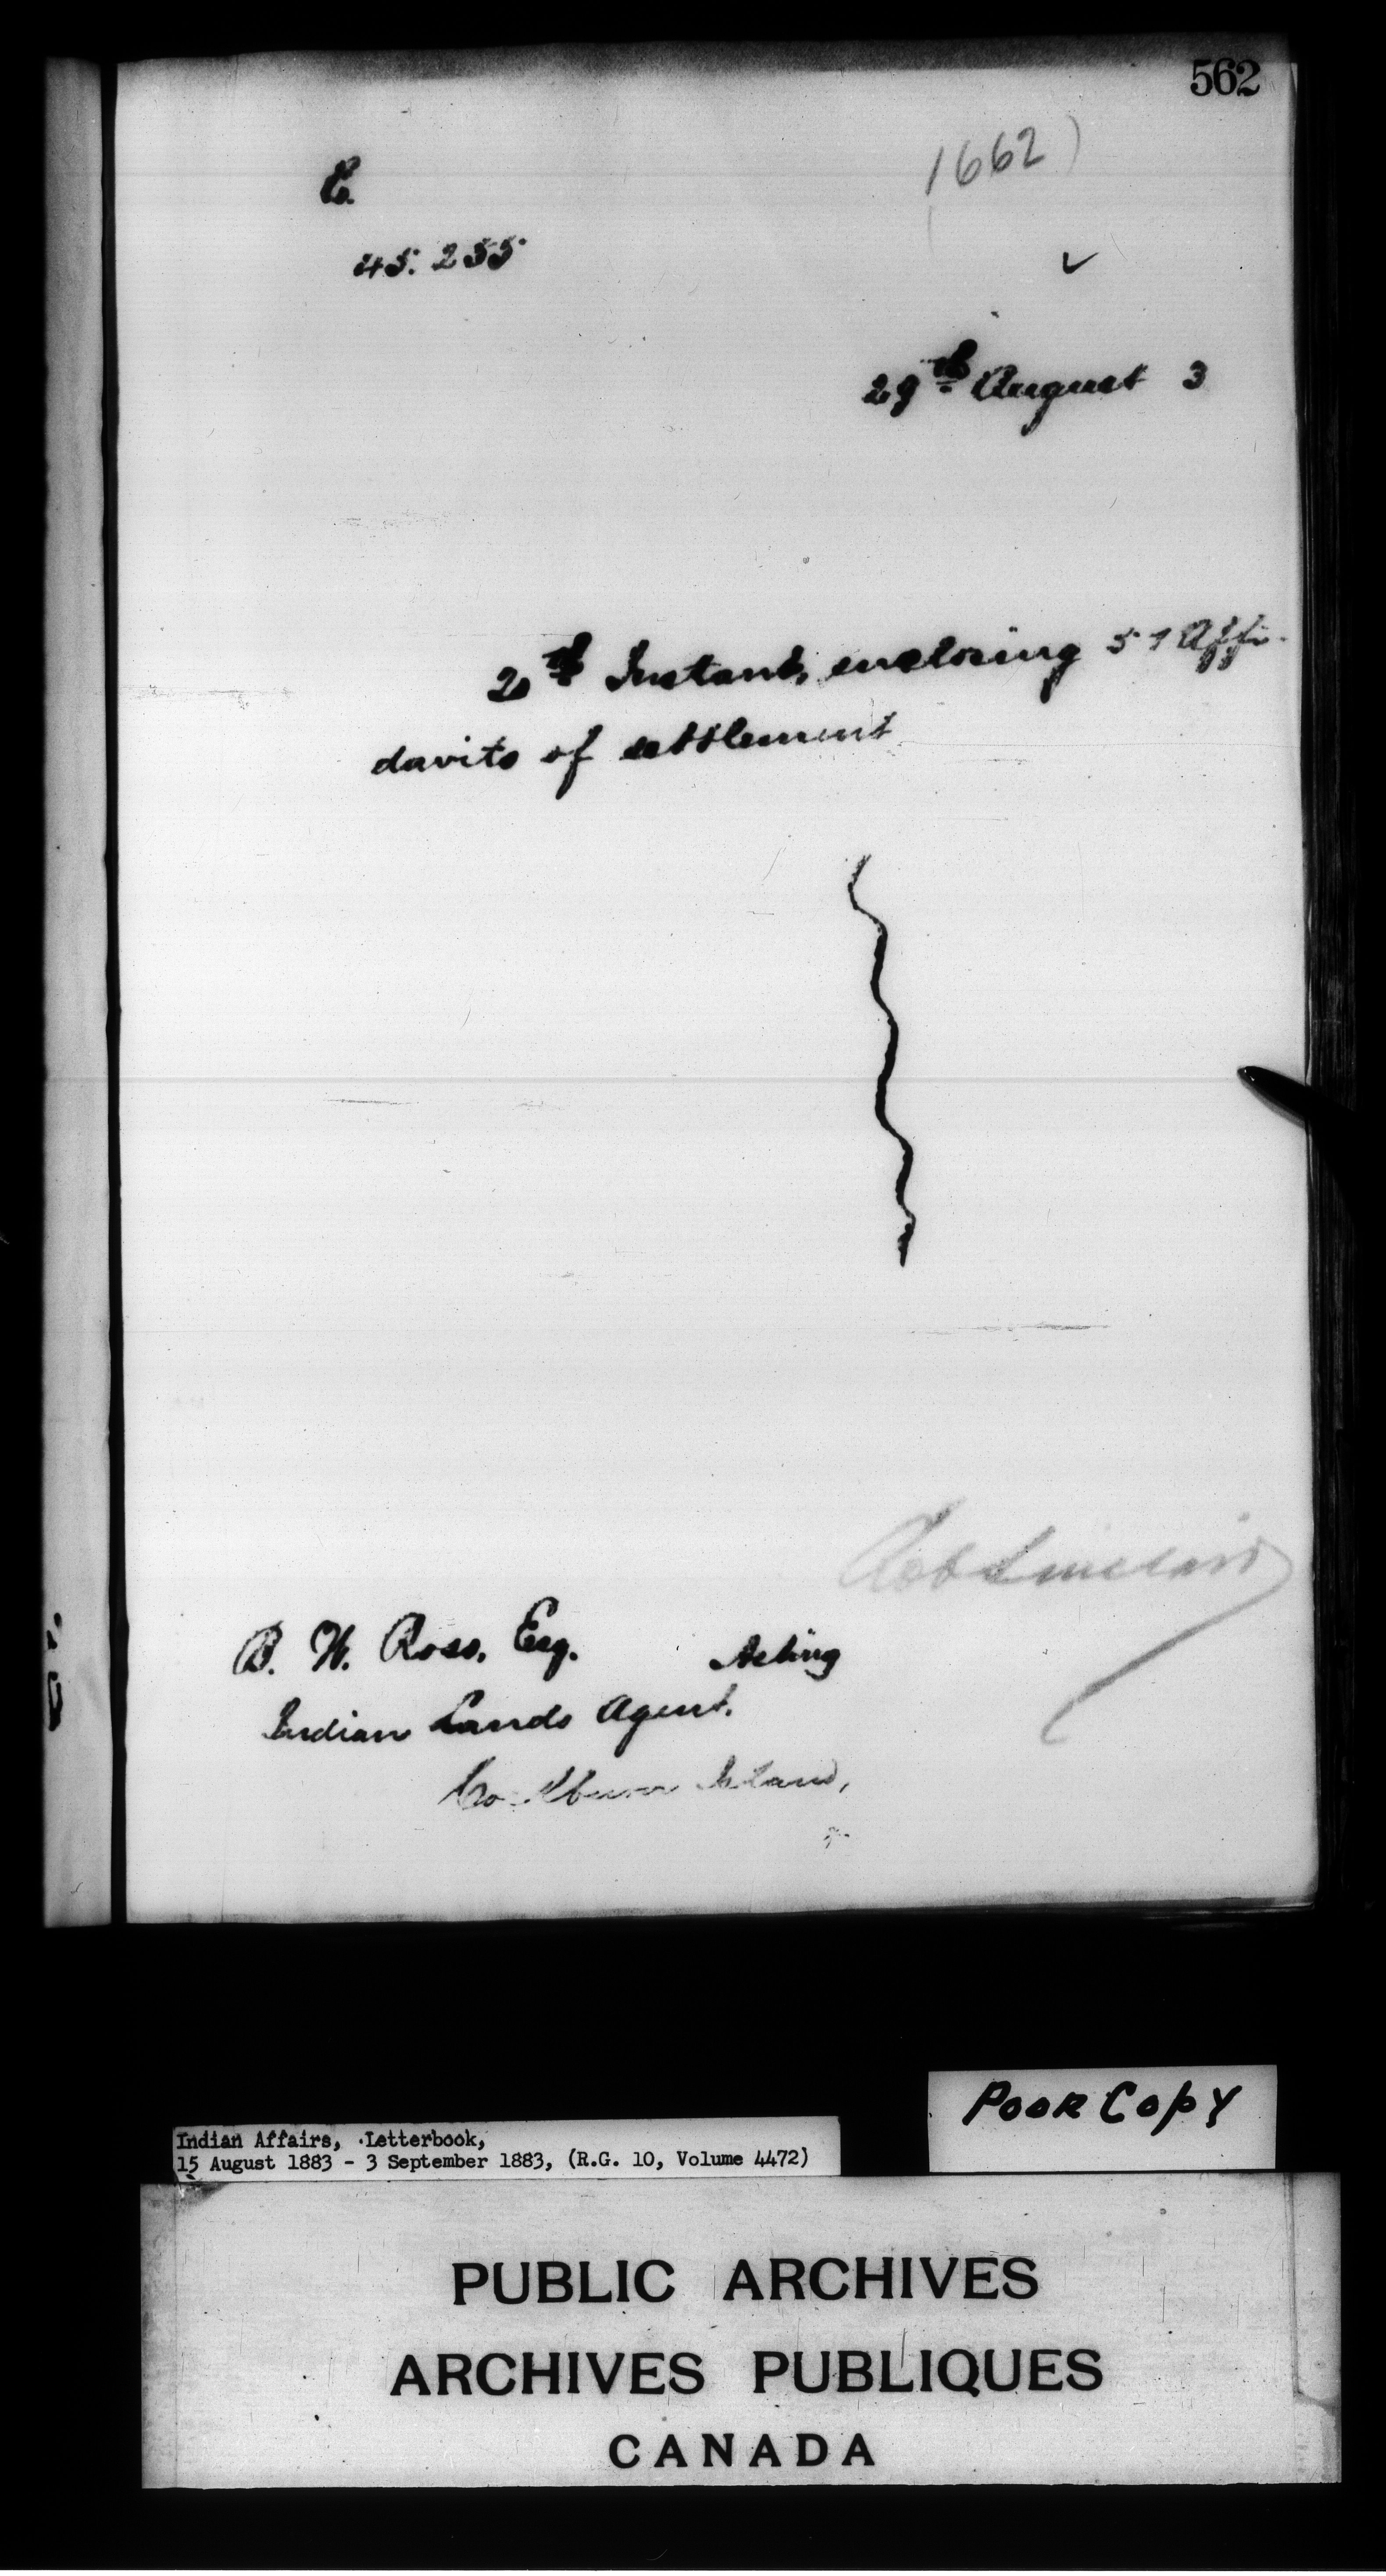 562
1662)
C.
45.255
29th August 3
2nd Instant, enclosing 51 Affi-
davits of settlement
Rob Sinclair
B. W. Ross, Esq. Acting
Indian Lands Agent.
Cockburn Island,
Poor Copy
Indian Affairs, Letterbook,
15 August 1883 - 3 September 1883, (R.G. 10, Volume 4472)
PUBLIC ARCHIVES
ARCHIVES PUBLIQUES
CANADA